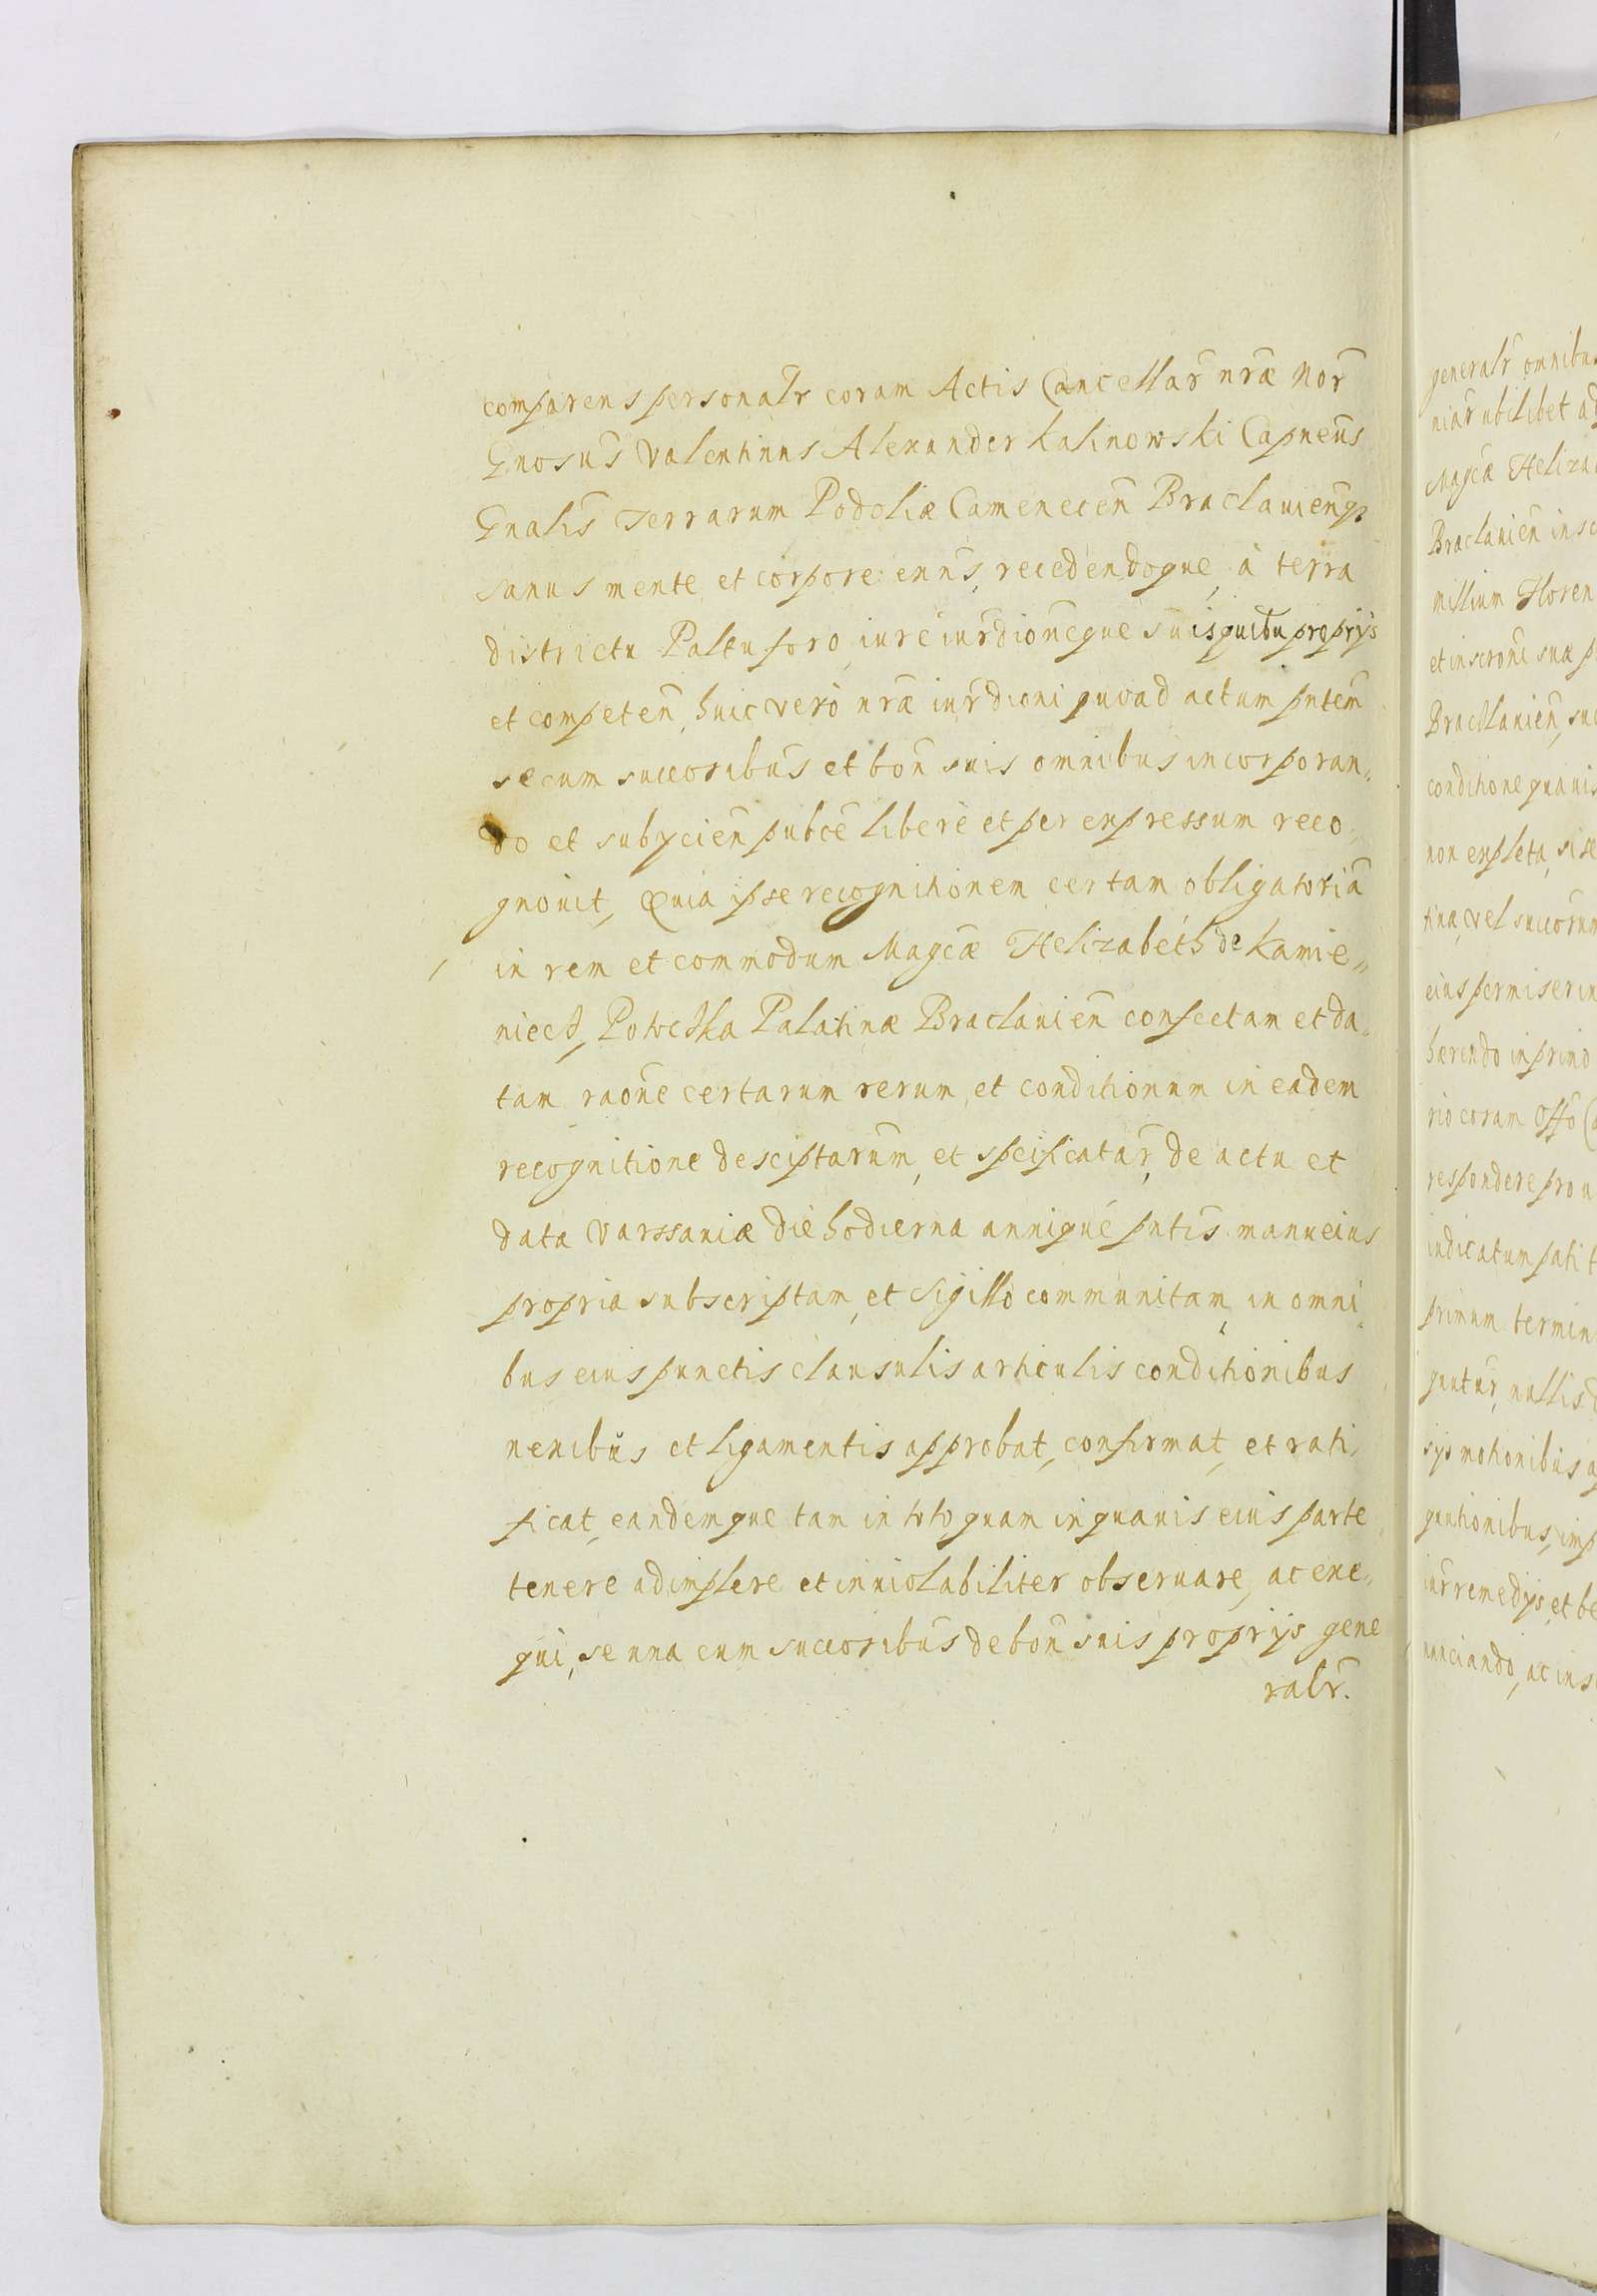 comparens personalr coram Actis Cancellar̃ nræ Nor̃
Gnosus Valentinus Alexander Kalinowski Capneus
Gnalis Terrarum Podoliæ Camenecen̄ Braclauien̄
sanus mente et corpore enñs, recedendoque, à terra
districtu Paltu foro, iure iurdioneque suis quibu proprys
et competen̄, huic verò nræ iurdioni quoad actum pntem̄
secum succoribus et bon̄ suis omnibus incorporan„
do et subycien̄ pubce liberè et per expressum reco„
gnouit, Quia ipse recognitionem certam obligatoriā
in rem et commodum Magcæ Helizabeth de Kamie„
niecz, Potocka Palatinæ Braclauien̄ confectam et da„
tam raone certarum rerum, et conditionum in eadem
recognitione desciptarum̄, et spcificatar̄, de actu et
data Varssauiæ die hodierna annique pntis manu eius
propria subscriptam, et Sigillo communitam, in omni„
bus eius punctis clausulis articulis conditionibus
nexibus et ligamentis approbat, confirmat, et rati„
ficat, eandemque tam in toto quam in quauis eius parte
tenere adimplere et inuiolabiliter obseruare, ac exe„
qui, se una cum succoribus de bon̄ suis proprys gene
ralr̃.
generalr̃ omnibu
niar̃ ubilibet ad
Magcæ Heliza
Braclauien̄ insc
millium Floren
et inscrone suæ p
Braclauien̄, suc
conditione quauis
non expleta, si se
tina, vel succorum
eius permiserin
hærendo in primo
rio coram Offo
respondere pro u
iudicatum pati t
primum termin
quutur, nullis
sys motionibus a
quutionibus, imp
iur̃ remedys, et be
unciando, ac ins